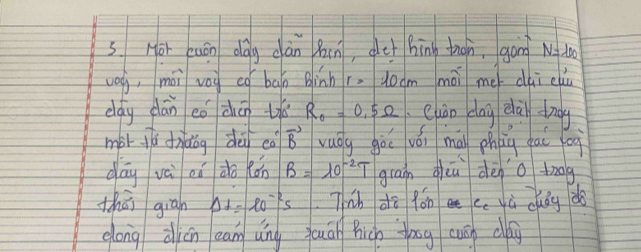 5. Một cuộn dây dẫn kín, dẹt hình tròn, gồm N=100
vòng, mỗi vòng có bán kính r = 10cm mỗi mét dài của
dây dẫn có điện trở R₀ = 0,5Ω. Cuộn dây đặt trong
một từ trường đều có B⃗ vuông góc với mặt phẳng các vòng
dây và có độ lớn B = 10⁻²T giảm đều đến 0 trong
thời gian Δt = 10⁻²s. Tính độ lớn ec và cường độ
dòng điện cảm ứng xuất hiện trong cuộn dây